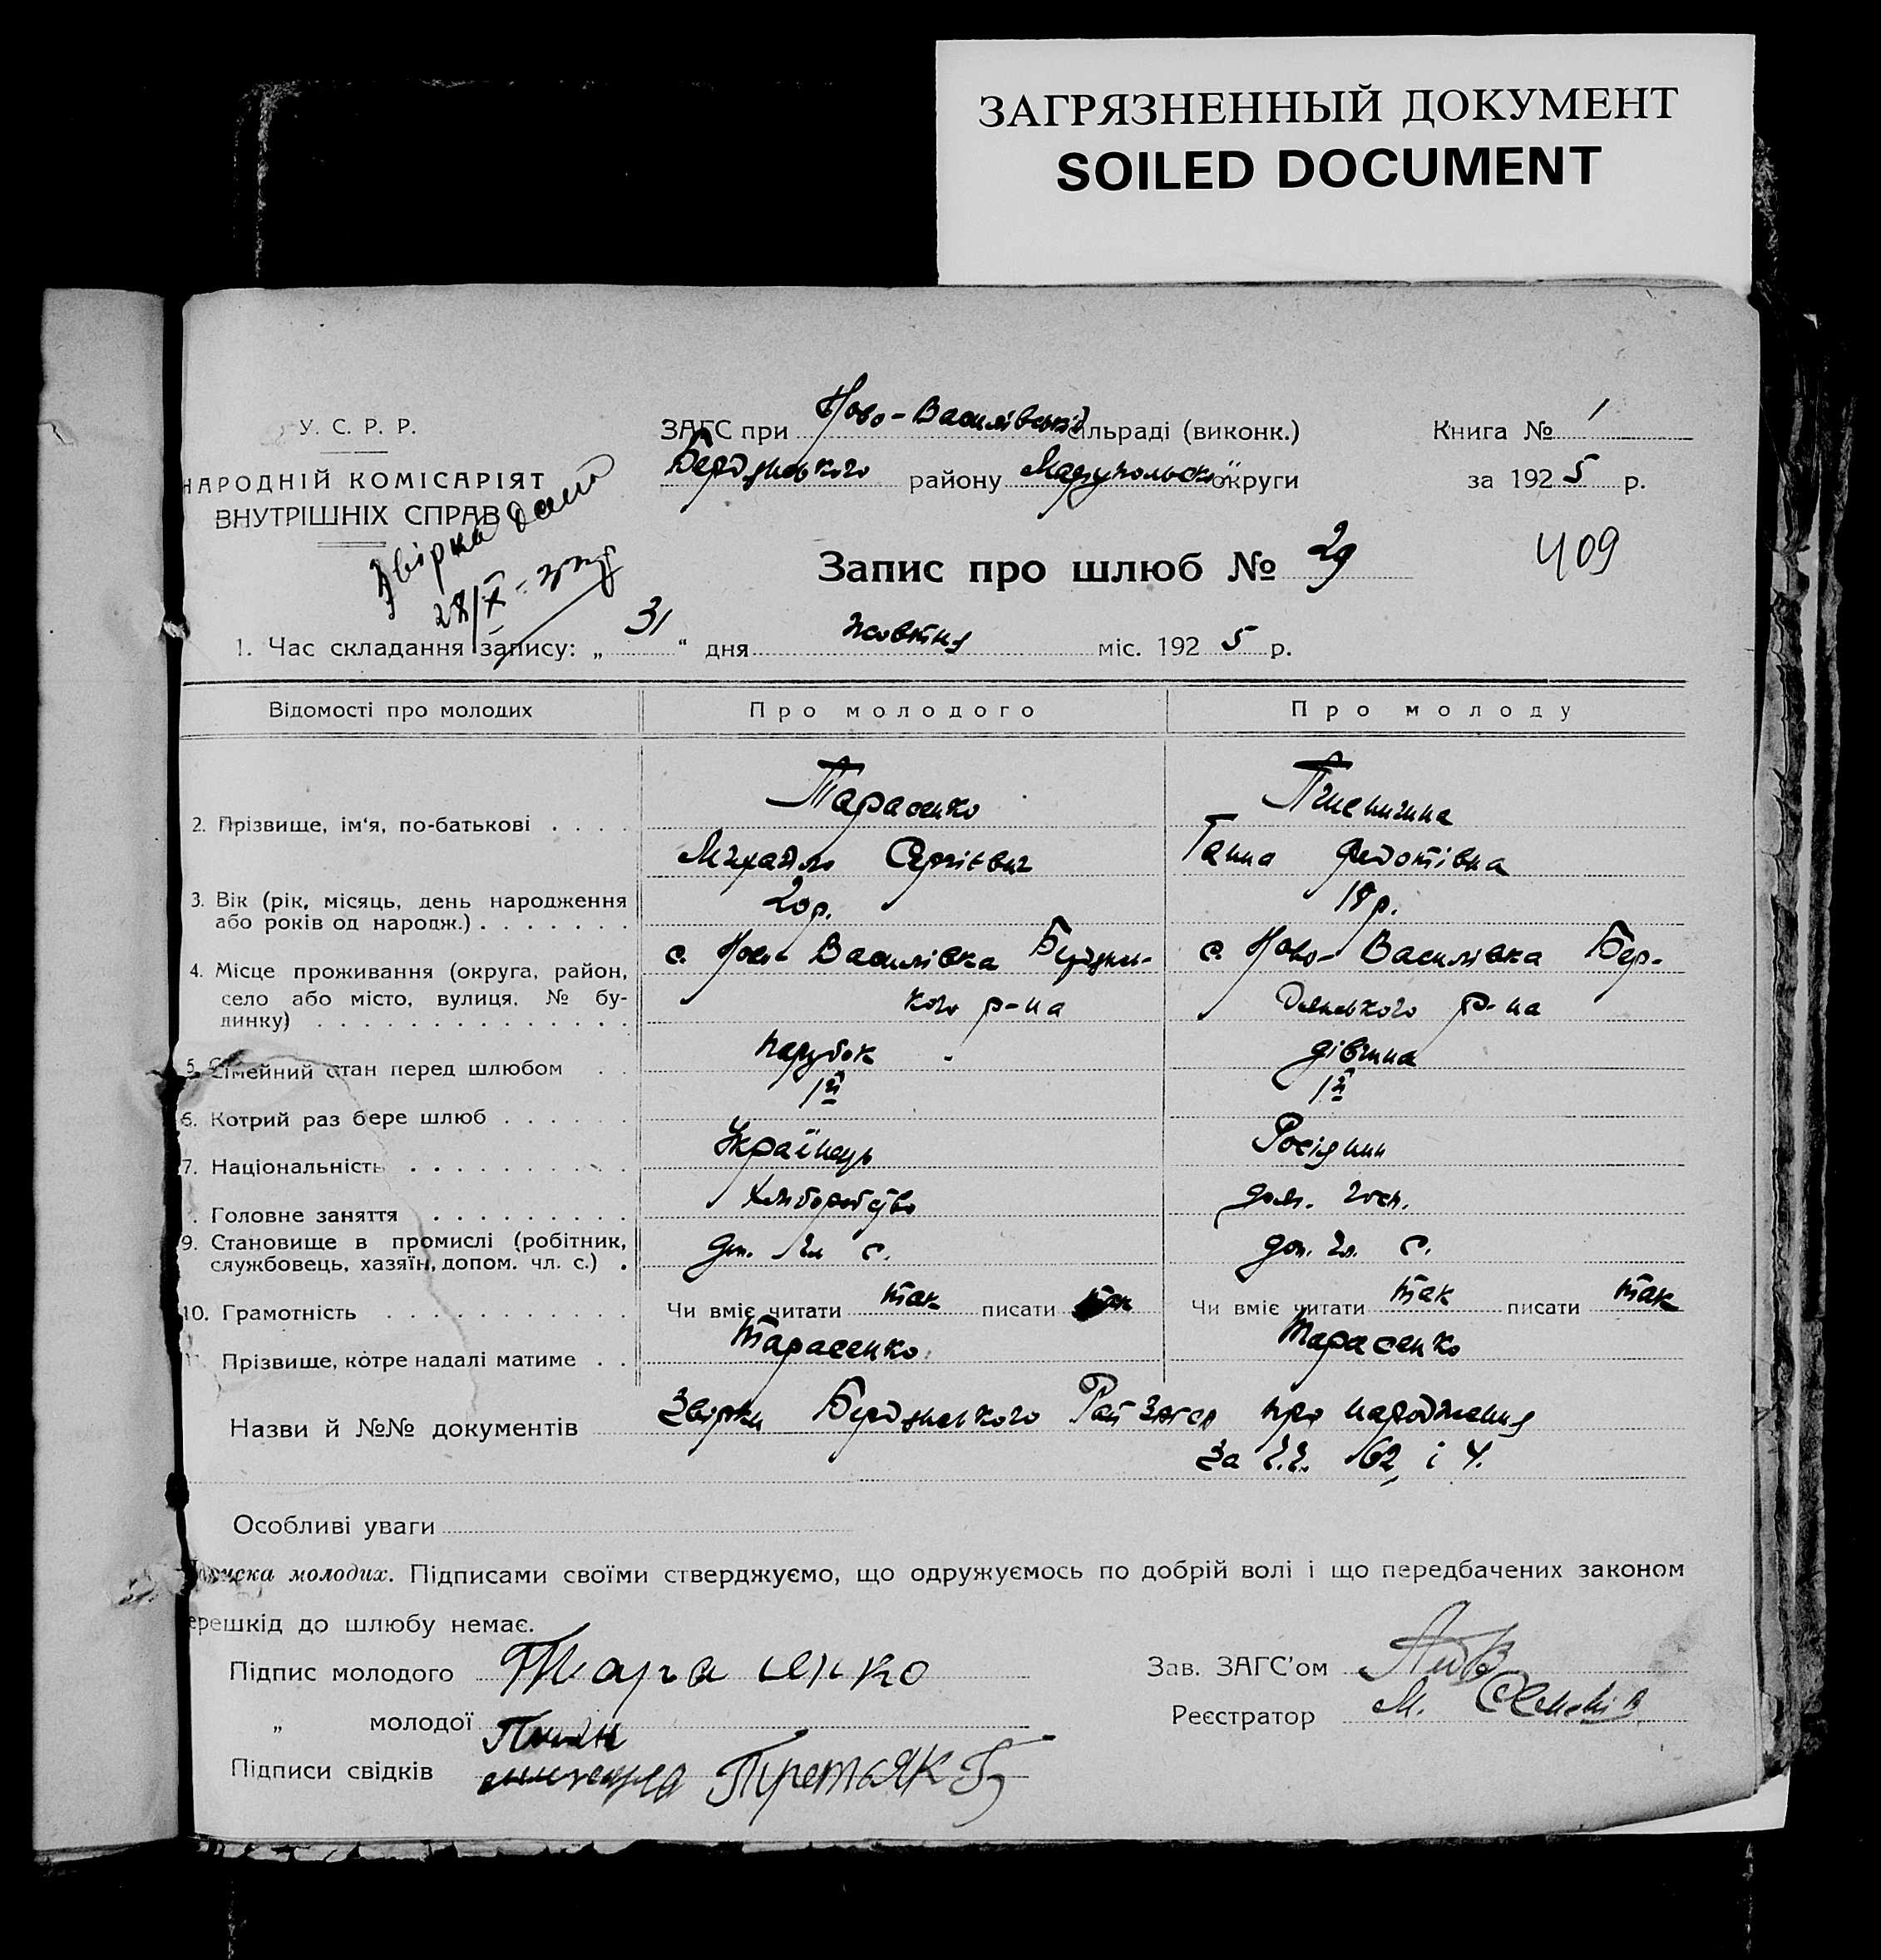 ЗАГРЯЗНЕННЫЙ ДОКУМЕНТ
SOILED DOCUMENT
У. С. Р. Р.
НАРОДНІЙ КОМІСАРІЯТ
ВНУТРІШНІХ СПРАВ
ЗАГС при Ново-Василівській сільраді (виконк.)
Бердянського району Маріупольської округи
Книга № 1
за 1925 р.
Звірка дана
28/X
Запис про шлюб № 29
409
1. Час складання запису: „31“ дня жовтня міс. 1925 р.
Відомості про молодих Про молодого Про молоду
Тарасенко Пшенична
2. Прізвище, ім‘я, по-батькові
Михайло Сергієвич Ганна Федотівна
3. Вік (рік, місяць, день народження або років од народж.) 20 р. 18 р.
4. Місце проживання (округа, район, село або місто, вулиця, № будинку)
с. Ново-Василівка Бердянського р-на с. Ново-Василівка Бердянського р-на
5. Сімейний стан перед шлюбом парубок дівчина
6. Котрий раз бере шлюб 1й 1й
7. Національність Українець Росіянин
Головне заняття хліборобство дом. госп.
9. Становище в промислі (робітник, службовець, хазяїн, допом. чл. с.) доп. чл. с. доп. чл. с.
10. Грамотність Чи вміє читати так писати так Чи вміє читати так писати так
11. Прізвище, котре надалі матиме Тарасенко Тарасенко
Назви й №№ документів Звірки Бердянського Рай Загса про народження
За ч.ч. 62 і 4.
Особливі уваги
молодих. Підписами своїми стверджуємо, що одружуємось по добрій волі і що передбачених законом
ерешкід до шлюбу немає.
Підпис молодого Тарасенко
„ молодої
Підписи свідків Третьяк
Зав. ЗАГС’ом
Реєстратор М.